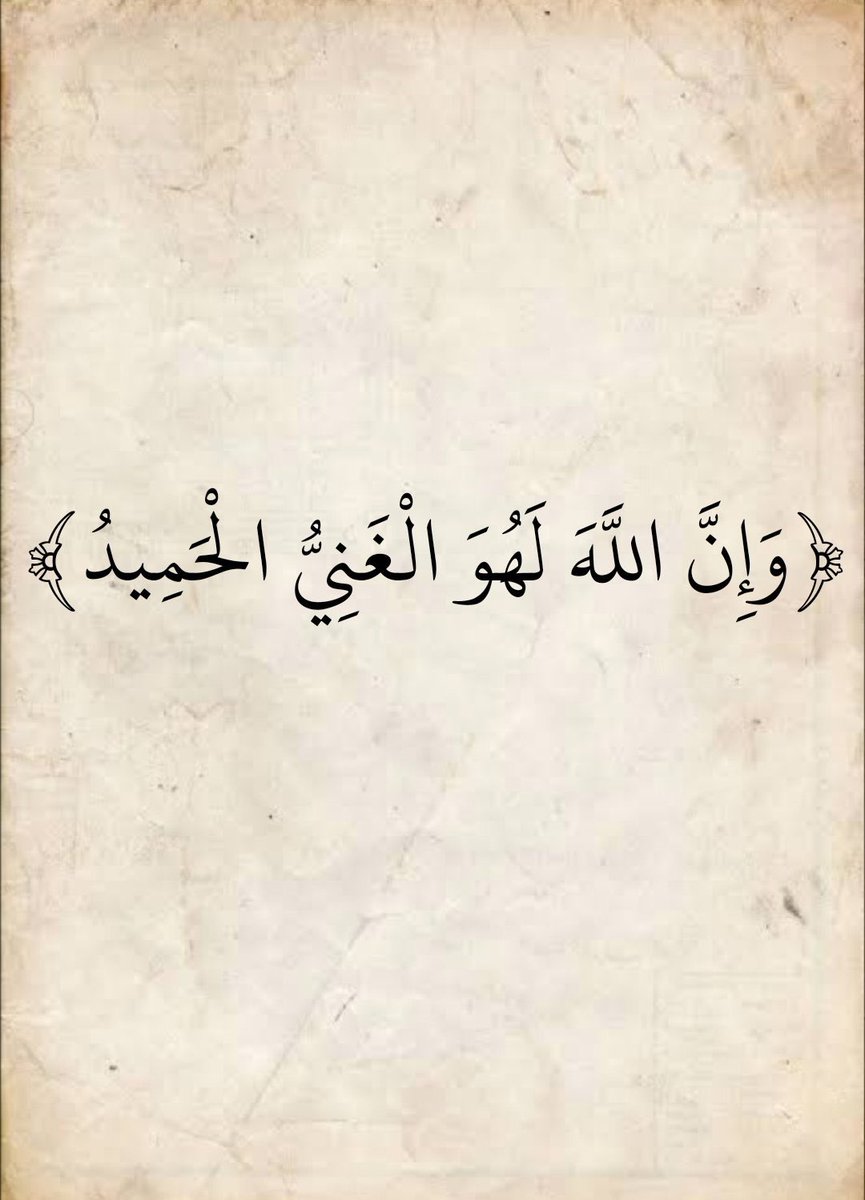 ﴿ وَإِنَّ اللَّهَ لَهُوَ الْغَنِيُّ الْحَمِيدُ ﴾